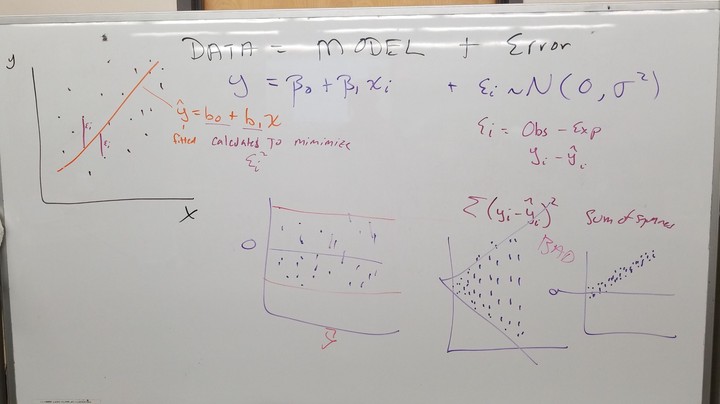 DATA = MODEL + Error
y = β₀ + β₁xᵢ + εᵢ ~ N(0, σ²)
y
ŷ = b₀ + b₁x
fitted calculated to mimimies
εᵢ²
εᵢ
εᵢ
x
εᵢ = Obs - Exp
yᵢ - ŷᵢ
Σ(yᵢ - ŷᵢ)² Sum of squares
BAD
0
0
ŷ